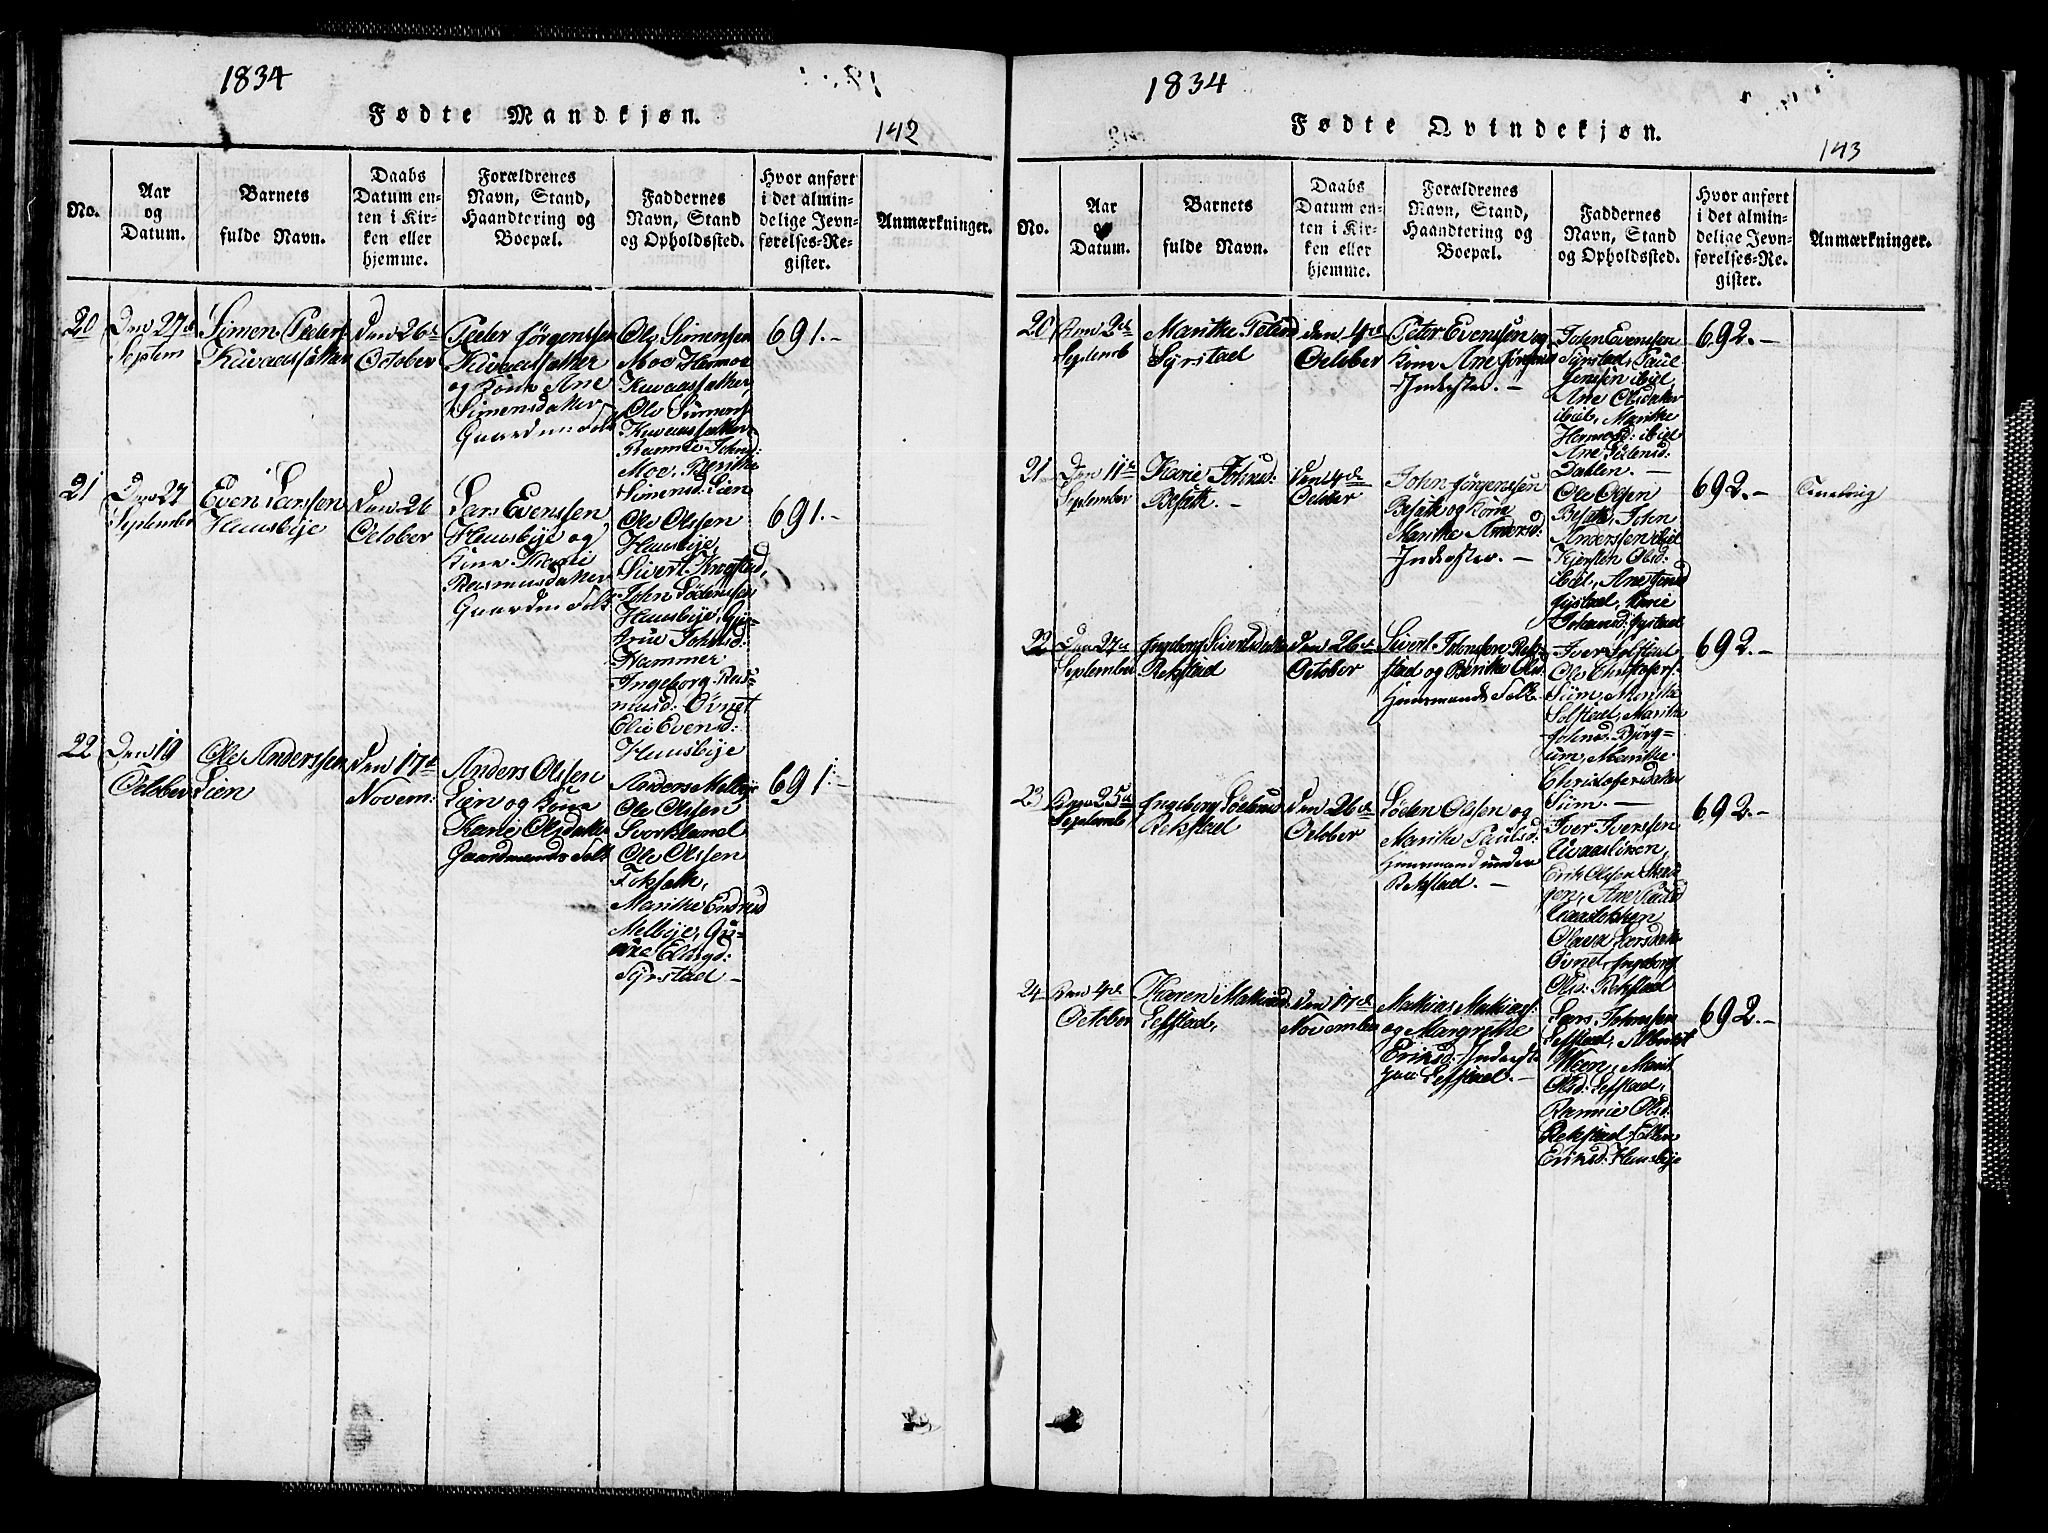 1834
Fødte Mandkjøn.
142
No.
Aar
og
Datum.
Barnets
fulde Navn.
Daabs
Datum en-
ten i Kir-
ken eller
hjemme.
Forældrenes
Navn, Stand,
Haandtering og
Boepæl.
Faddernes
Navn, Stand
og Opholdssted.
Hvor anført
i det almin-
delige Jevn-
førelses-Re-
gister.
Anmærkninger.
20
Den 27de
Septem
Simen Peders
Kuvaassæther
Den 26de
October
Peder Jørgenssen
Kuvaassæther
og Kone Ane
Simensdatter
Gaarden Folk
Ole Simenssen
Moe
Kuvaassæther,
Ole Simens
Kuvaassæther
Johnsd:
Moe, Berithe
Simensd: Lien
691.-
21
Den 27
September
Even Larssen
Huusbÿe
Den 26
October
Lars Evenssen
Huusbÿe og
Kone Marie
Rasmusdatter
Gaarden Folk
Ole Olssen
Huusbÿe,
Sivert Krogstad,
John Sødenssen
Huusbÿe, Gju-
true Johnsd:
Hammer
Ingeborg Ras-
musd: Ovnet
Elie Evensd:
Huusbÿe
691.-
22
Den 19
October
Ole Anderssen
Lien
Den 17de
Novem:
Anders Olssen
Lien og Kone
Karie Olsdatter
Gaardmands Folk
Anders Melbÿe
Ole Olssen
Svorkland
Ole Olssen
Fokseth,
Marithe Endresd
Melbÿe, Gu-
Sÿrstad -
691:-
1834
Fødte Qvindekjøn.
143
No.
Aar
og
Datum.
Barnets
fulde Navn.
Daabs
Datum en-
ten i Kir-
ken eller
hjemme.
Forældrenes
Navn, Stand,
Haandtering og
Boepæl.
Faddernes
Navn, Stand
og Opholdssted.
Hvor anført
i det almin-
delige Jevn-
førelses-Re-
gister.
Anmærkninger.
20
Den 2de
Septemb
Marithe Petersd
Sÿrstad
den 4de
October
Peter Evenssen og
Kone Ane Jørgensd
Inderster. -
John Evenssen
Sÿrstad, Paul
Jenssen ibid,
Ane Olsdatter
ibid, Marithe
ibid
Ane Sødensd:
Dahlen. -
692.-
21
Den 11te
September
Karie Johnsd:
Besæth. -
Den 4de
October
John Jørgenssen
Besæth og Kone
Marithe Andersd:
Inderster. -
Ole Olsen
Besæth, John
Anderssen ibid
Kjersten Olsd:
ibid, Ane
Jÿstad, Karie
Johansd: Jÿstad
692.-
22
Den 27de
September
Ingeborg Sivertsdatter
Rekstad
Den 26de
October
Sivert Johnssen Rek-
stad og Berithe Olsd:
Huusmands Folk
Iver Solstad
Ole Christofers:
Siim, Marithe
Solstad, Marithe
Johnsd: Bjørg-
um, Marithe
Christofersdatter
Siim. -
692.-
23
Den 25de
Septemb
Ingeborg Sødensd
Rekstad
Den 26de
October
Søden Olssen og
Marithe Paulsd:
Huusmand under
Rekstad. -
Iver Iverssen
Erik Olssen
Ane Paulsd
Larsdatter
Ovnet, Ingeborg
Olsd: Rekstad
692.-
24
Den 4de
October
Karen Mathiasd
Lefstad,
Den 17de
November
Mathias Mathias:
og Margrethe
Eriksd: Inderste
paa Lefstad. -
Lars Johnssen
Lefstad,
Marit
Olsd: Lefstad,
Rannie Olsd:
Rekstad, Ellen
Eriksd: Huusbÿe
692.-